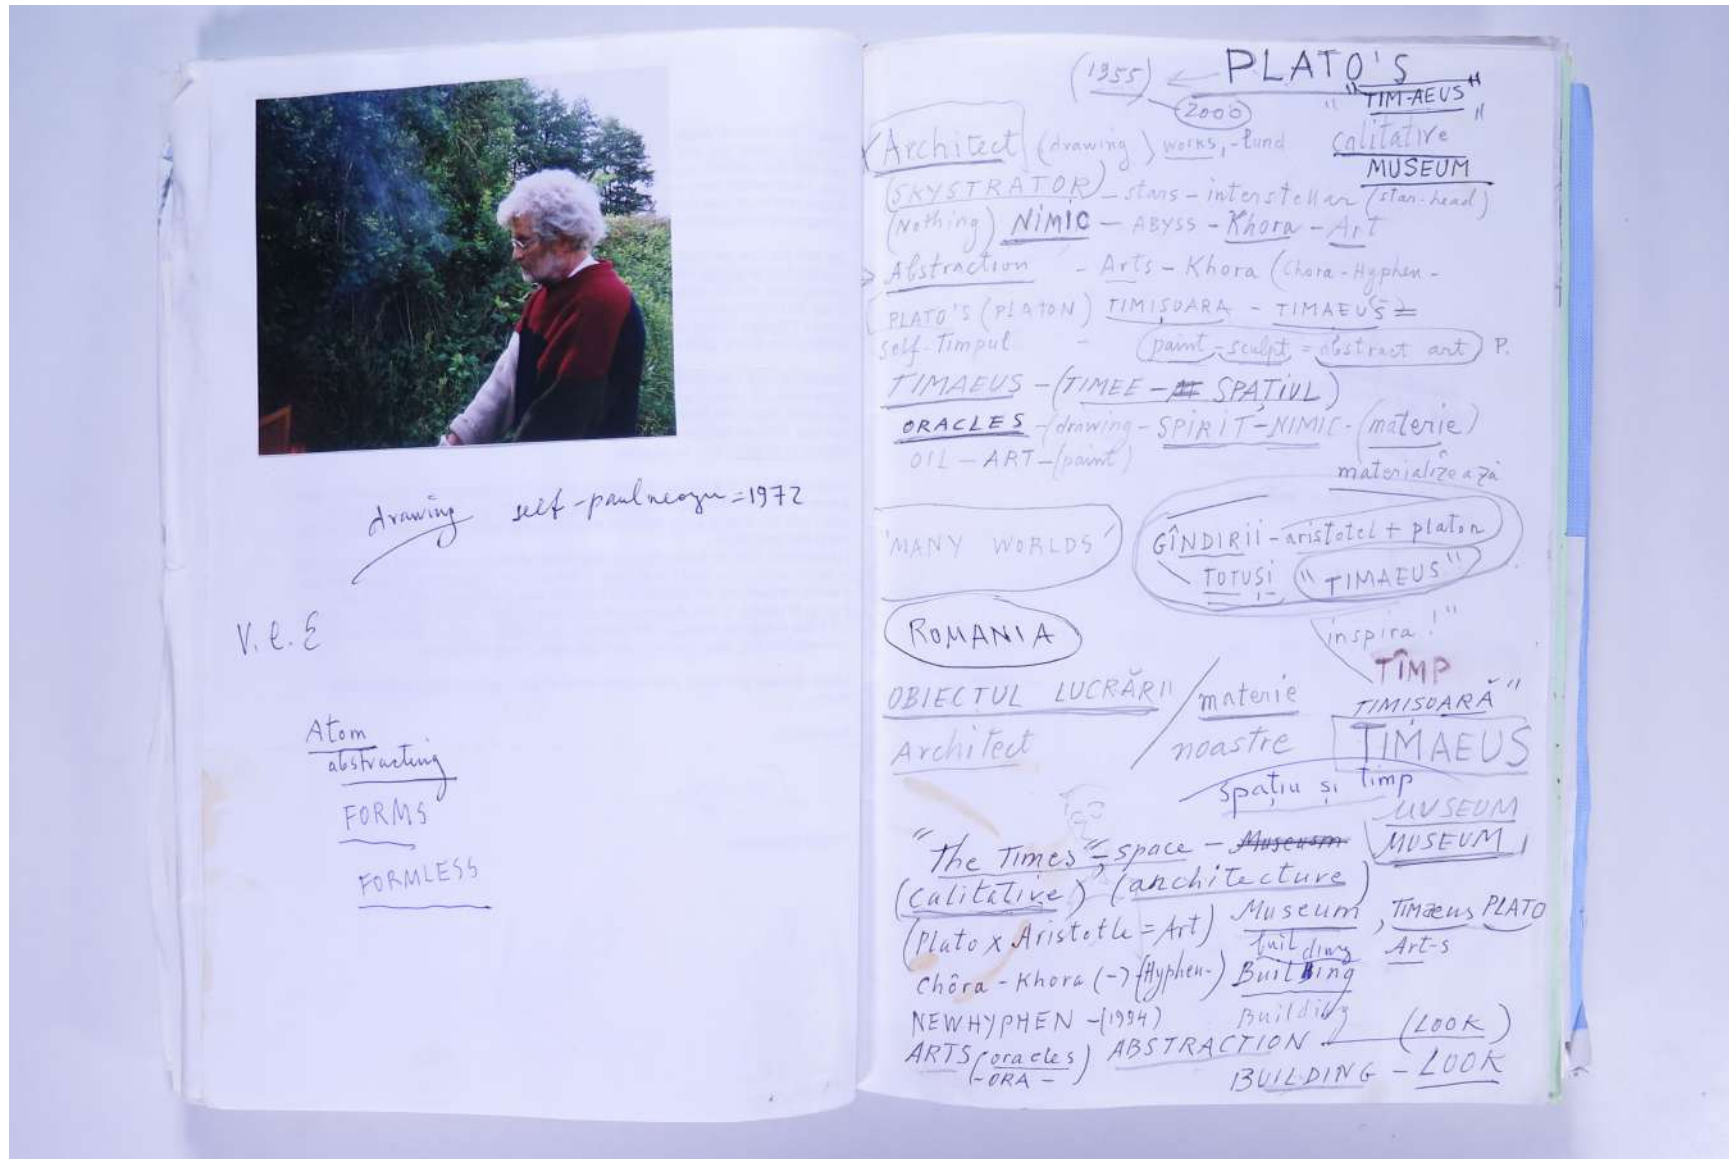 drawing self-paul neagu=1972
V. L. E
Atom
abstracting
FORMS
FORMLESS
(1955) ← PLATO'S
"TIM-AEUS"
(2000)
Architect (drawing) works, -fund calitative
MUSEUM
(SKYSTRATOR) - stars - interstellar (star-head)
(Nothing) NIMIC - ABYSS - Khora - Art
> Abstraction - Arts - Khora (Chora - Hyphen -
PLATO'S (PLATON) TIMIȘOARA - TIMAEUS =
Self-Timpul - (paint - sculpt = abstract art) P.
TIMAEUS - (TIMEE - SPAȚIUL)
ORACLES - (drawing - SPIRIT - NIMIC - (materie)
OIL - ART - (paint) materializează
'MANY WORLDS'
GÎNDIRii - aristotel + platon
TOTUȘI "TIMAEUS"
ROMANIA
inspira!"
TÎMP
OBIECTUL LUCRĂRII / materie TIMISOARĂ"
Architect / noastre TIMAEUS
spațiu și timp
MUSEUM
"The Times" - space - Museusm MUSEUM
(Calitative) (architecture)
(Plato x Aristotle = Art) Museum, Timaeus PLATO
building Art-s
Chôra - Khora (-) (Hyphen-) Building
NEWHYPHEN - (1994) Building
ARTS (oracles) ABSTRACTION - (LOOK)
-ORA - BUILDING - LOOK